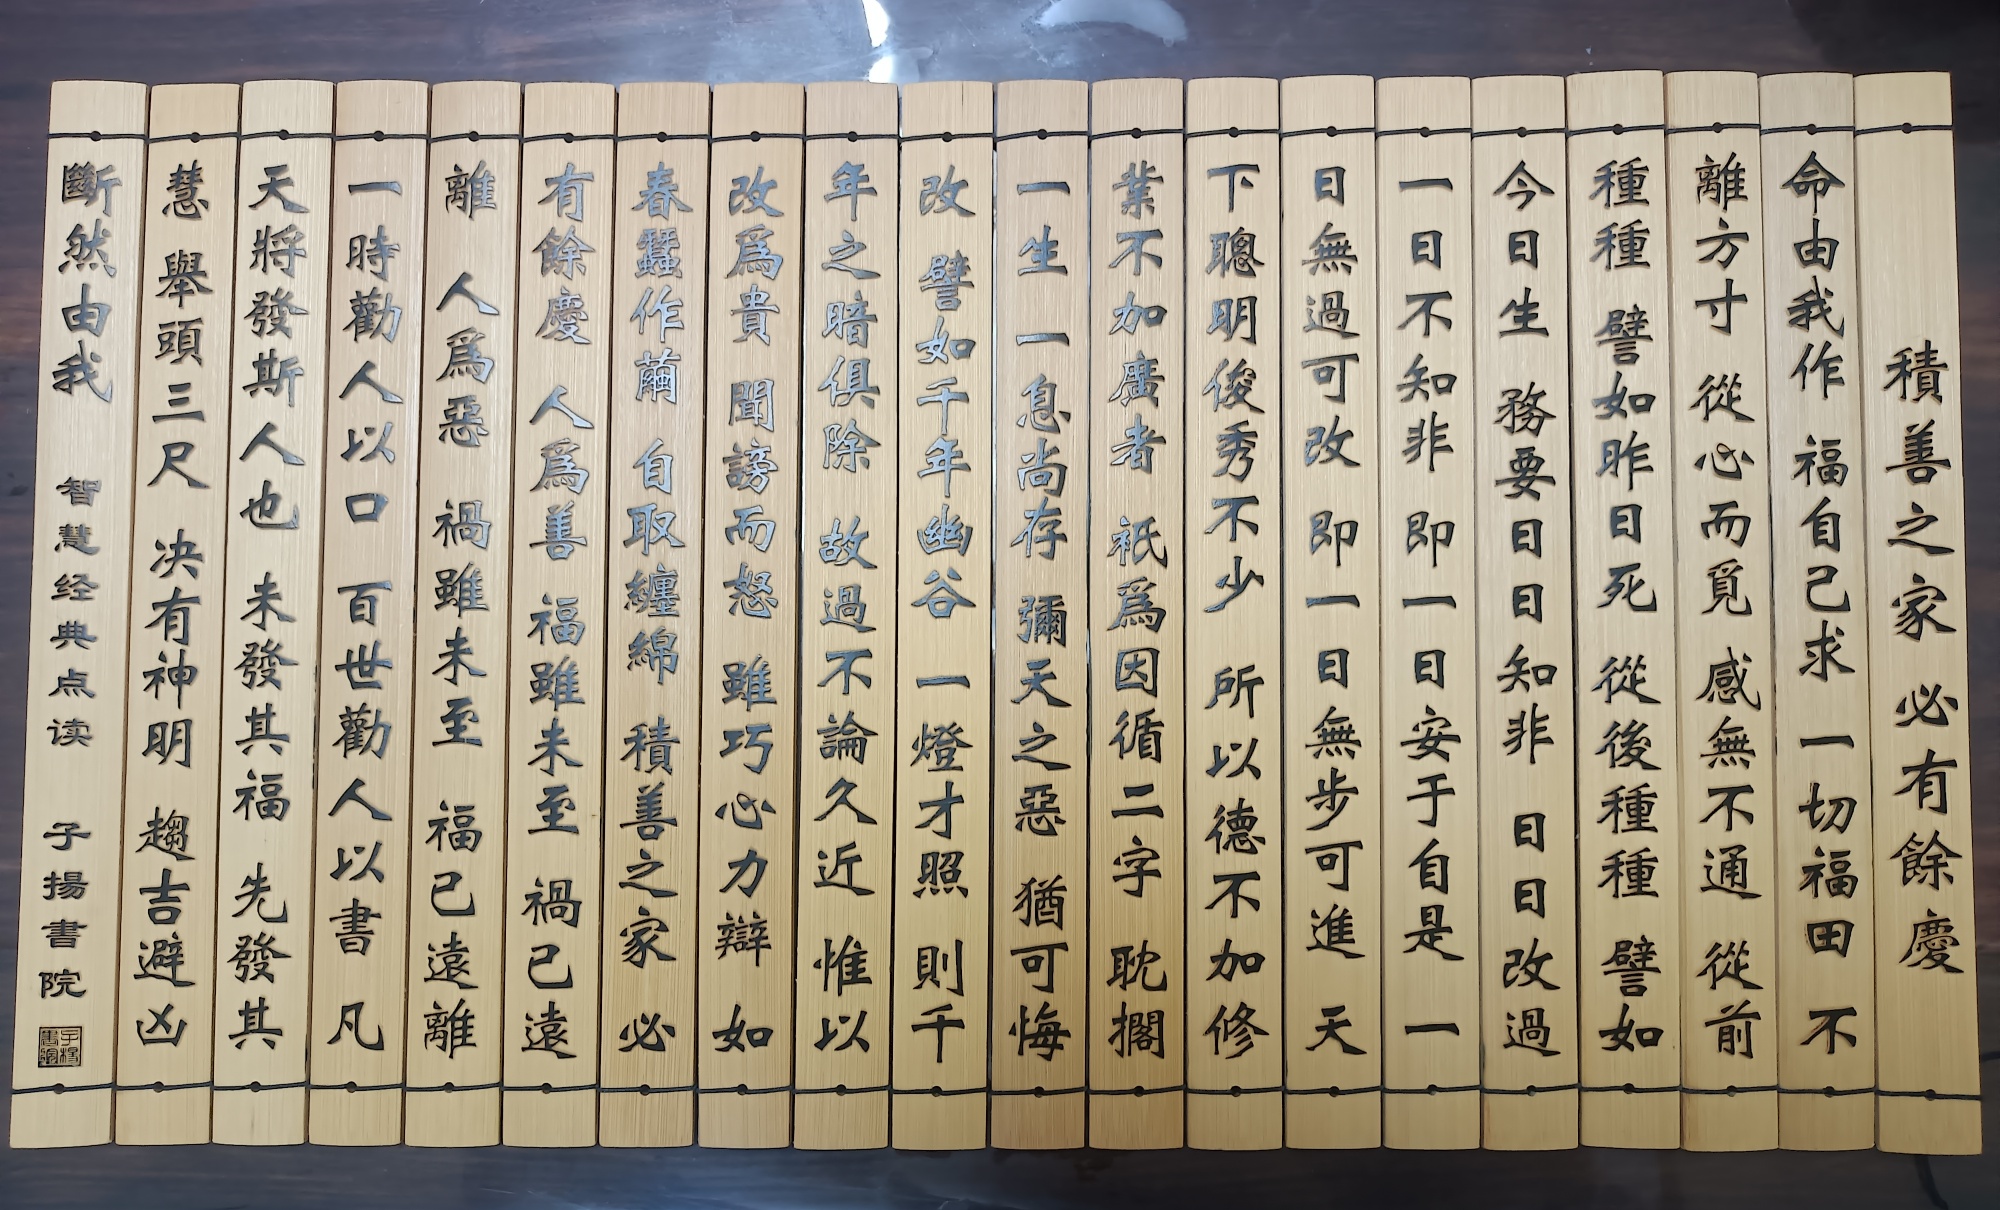 積善之家 必有餘慶
命由我作 福自己求 一切福田 不
離方寸 從心而覓 感無不通 從前
種種 譬如昨日死 從後種種 譬如
今日生 務要日日知非 日日改過
一日不知非 即一日安于自是 一
日無過可改 即一日無步可進 天
下聰明俊秀不少 所以德不加修
業不加廣者 衹爲因循二字 耽擱
一生 一息尚存 彌天之惡 猶可悔
改 譬如千年幽谷 一燈才照 則千
年之暗俱除 故過不論久近 惟以
改爲貴 聞謗而怒 雖巧心力辯 如
春蠶作繭 自取纏綿 積善之家 必
有餘慶 人爲善 福雖未至 禍已遠
離 人爲惡 禍雖未至 福已遠離
一時勸人以口 百世勸人以書 凡
天將發斯人也 未發其福 先發其
慧 舉頭三尺 决有神明 趨吉避凶
斷然由我 智慧经典点读 子揚書院
子楊書院